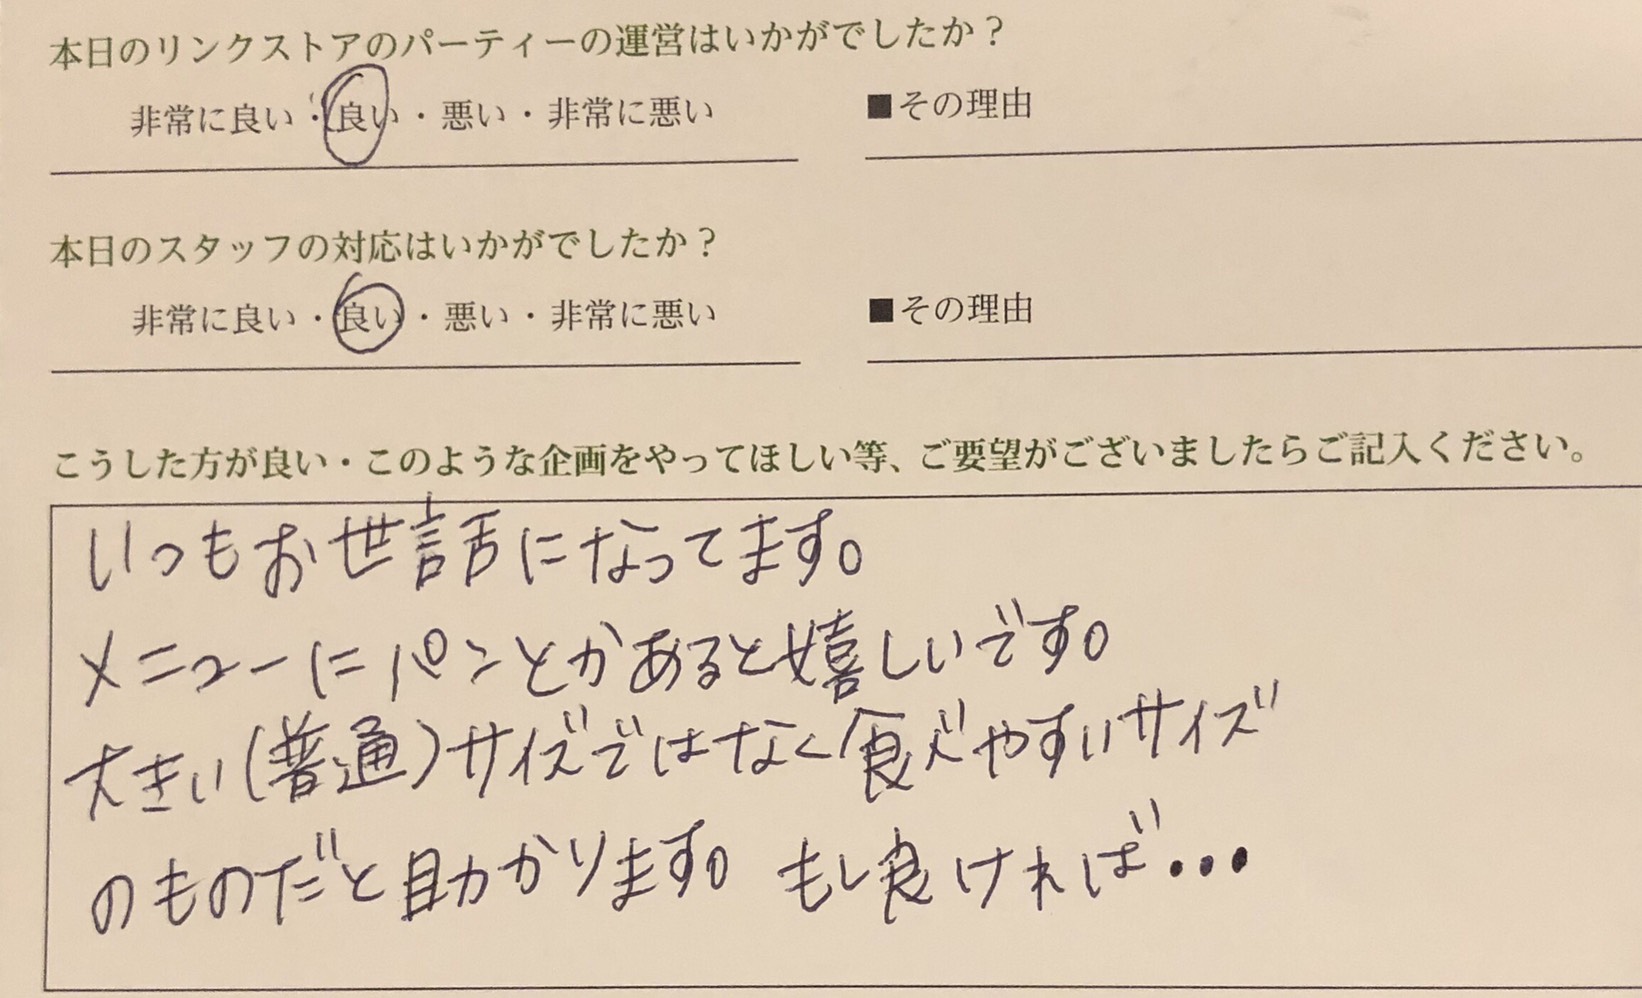 本日のリンクストアのパーティーの運営はいかがでしたか？
非常に良い・良い・悪い・非常に悪い ■その理由
本日のスタッフの対応はいかがでしたか？
非常に良い・良い・悪い・非常に悪い ■その理由
こうした方が良い・このような企画をやってほしい等、ご要望がございましたらご記入ください。
いつもお世話になってます。
メニューにパンとかあると嬉しいです。
大きい(普通)サイズではなく食べやすいサイズ
のものだと助かります。もし良ければ...